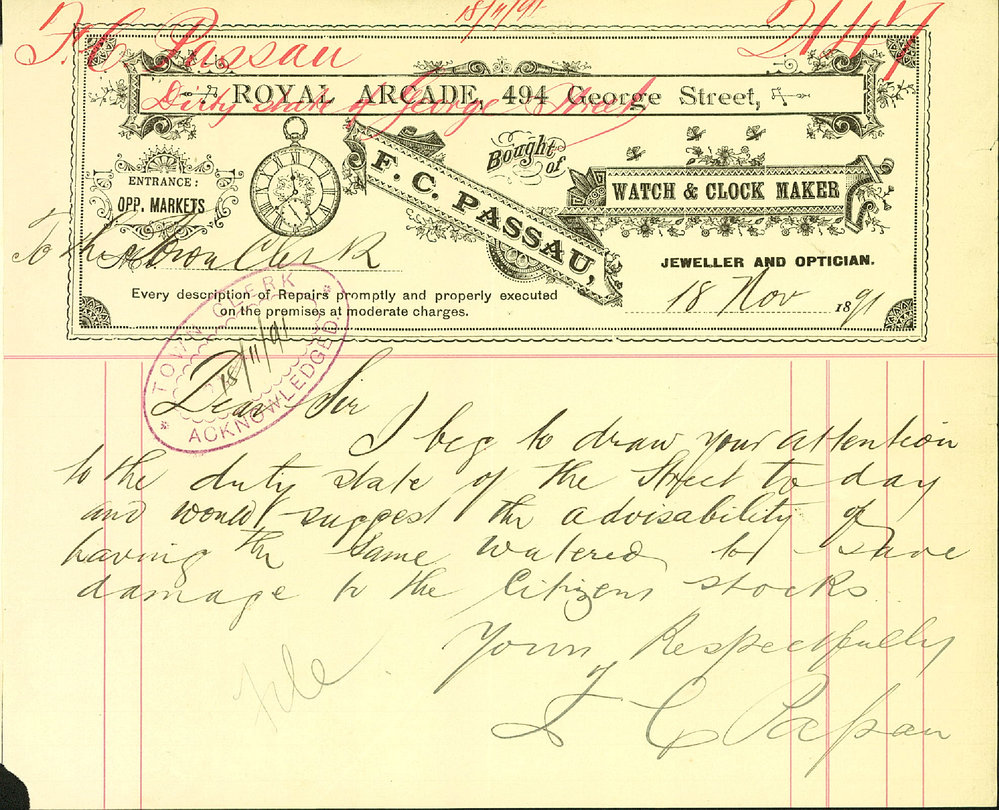 18/11/91
F. C. Passau 2147
ROYAL ARCADE, 494 George Street,
Dirty state of George Street
Bought of
ENTRANCE:
OPP. MARKETS
F. C. PASSAU,
WATCH & CLOCK MAKER
JEWELLER AND OPTICIAN.
To the Town Clerk
M
18 Nov 1891
Every description of Repairs promptly and properly executed
on the premises at moderate charges.
TOWN CLERK
18/11/91
ACKNOWLEDGED.
Dear Sir
I beg to draw your attention
to the dusty state of the Street to day
and would suggest the advisability of
having the same watered to save
damage to the Citizens stocks
Yours Respectfully
F C Passau
File